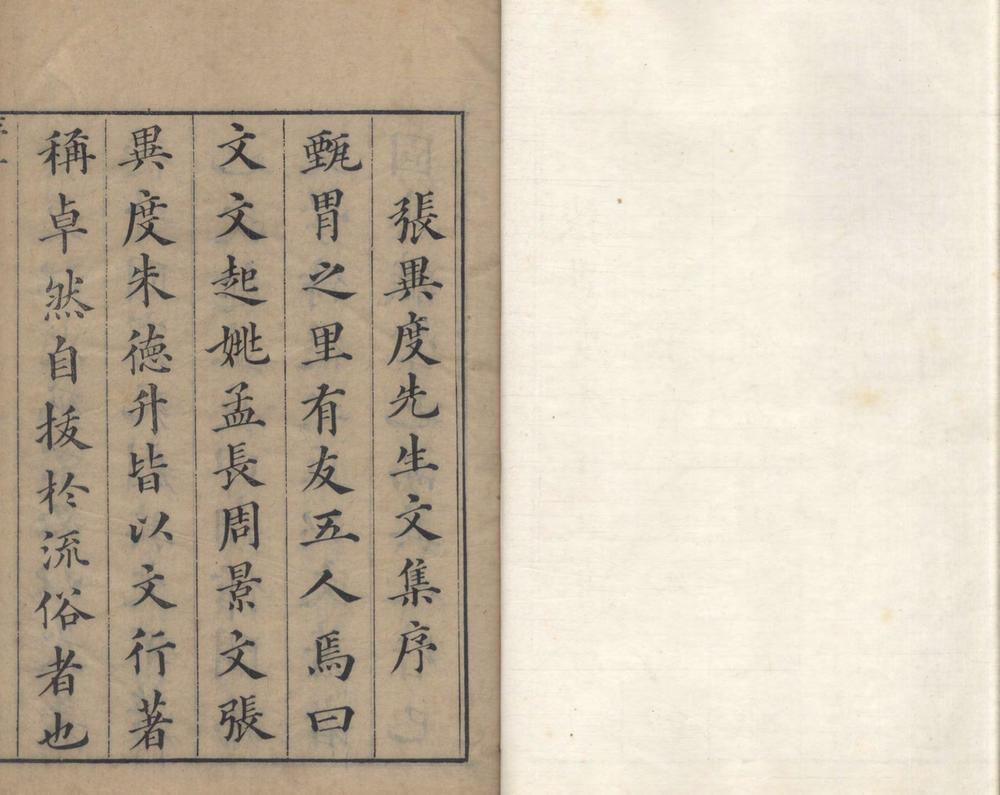 張異度先生文集序
甄胃之里有友五人焉曰
文文起姚孟長周景文張
異度朱德升皆以文行著
稱卓然自拔於流俗者也